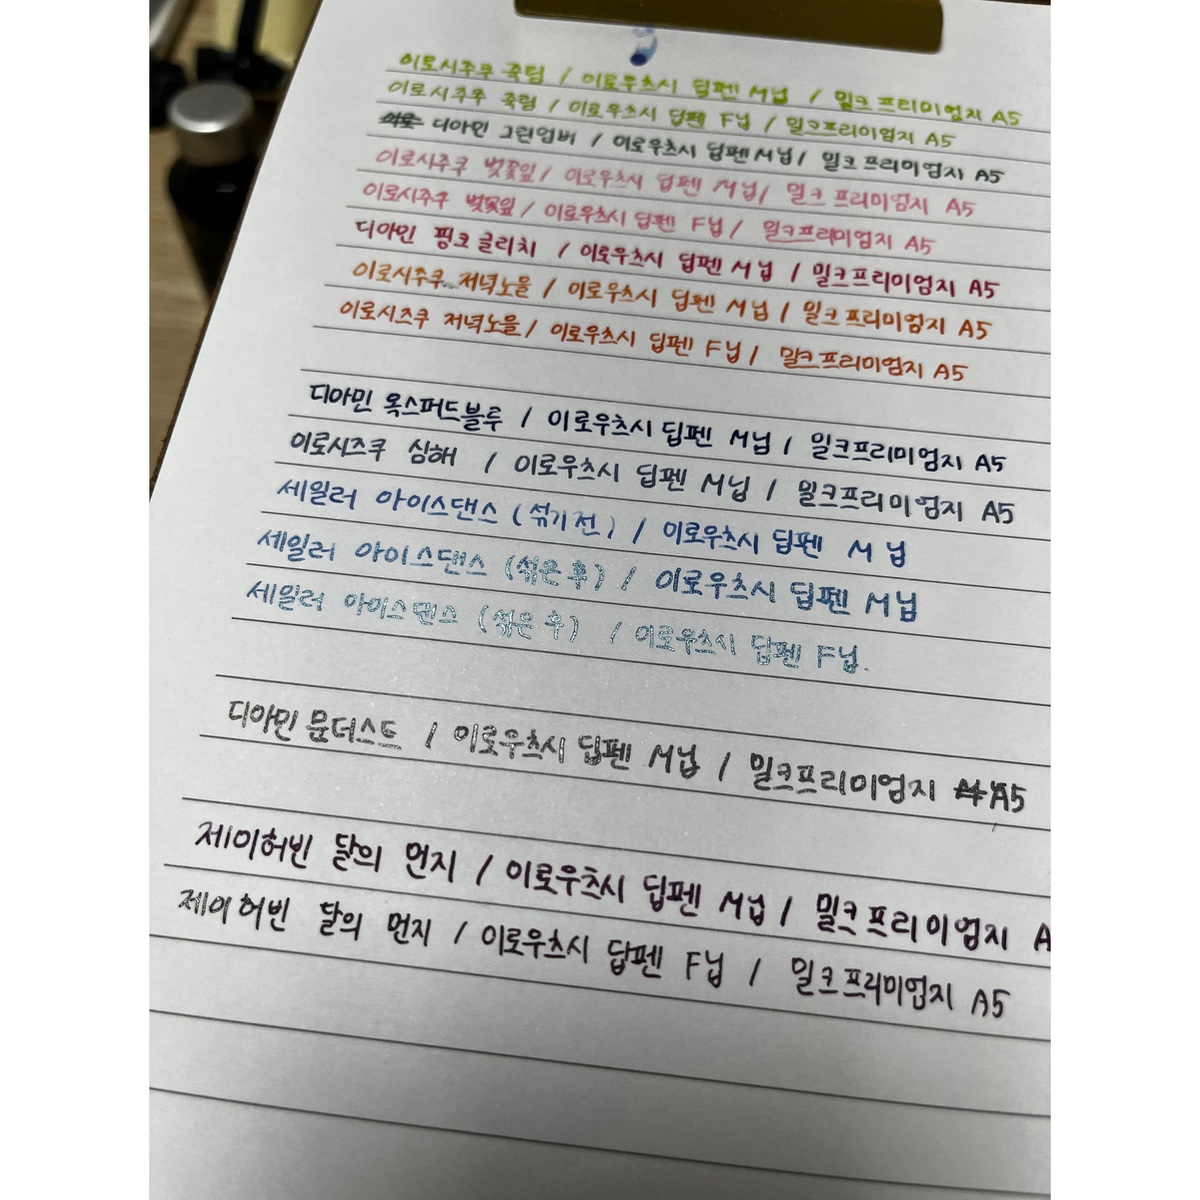 이로시주쿠 죽림 / 이로우츠시 딥펜 M닙 / 밀크프리미엄지 A5
이로시주쿠 죽림 / 이로우츠시 딥펜 F닙 / 밀크프리미엄지 A5
디아민 그린엄버 / 이로우츠시 딥펜 M닙 / 밀크프리미엄지 A5
이로시주쿠 벚꽃잎 / 이로우츠시 딥펜 M닙 / 밀크프리미엄지 A5
이로시주쿠 벚꽃잎 / 이로우츠시 딥펜 F닙 / 밀크프리미엄지 A5
디아민 핑크글리치 / 이로우츠시 딥펜 M닙 / 밀크프리미엄지 A5
이로시주쿠 저녁노을 / 이로우츠시 딥펜 M닙 / 밀크프리미엄지 A5
이로시즈쿠 저녁노을 / 이로우츠시 딥펜 F닙 / 밀크프리미엄지 A5
디아민 옥스퍼드블루 / 이로우츠시 딥펜 M닙 / 밀크프리미엄지 A5
이로시즈쿠 심해 / 이로우츠시 딥펜 M닙 / 밀크프리미엄지 A5
세일러 아이스댄스 (섞기전) / 이로우츠시 딥펜 M닙
세일러 아이스댄스 (섞은후) / 이로우츠시 딥펜 M닙
세일러 아이스댄스 (섞은후) / 이로우츠시 딥펜 F닙.
디아민 문더스트 / 이로우츠시 딥펜 M닙 / 밀크프리미엄지 A5
제이허빈 달의 먼지 / 이로우츠시 딥펜 M닙 / 밀크프리미엄지 A
제이허빈 달의 먼지 / 이로우츠시 딥펜 F닙 / 밀크프리미엄지 A5